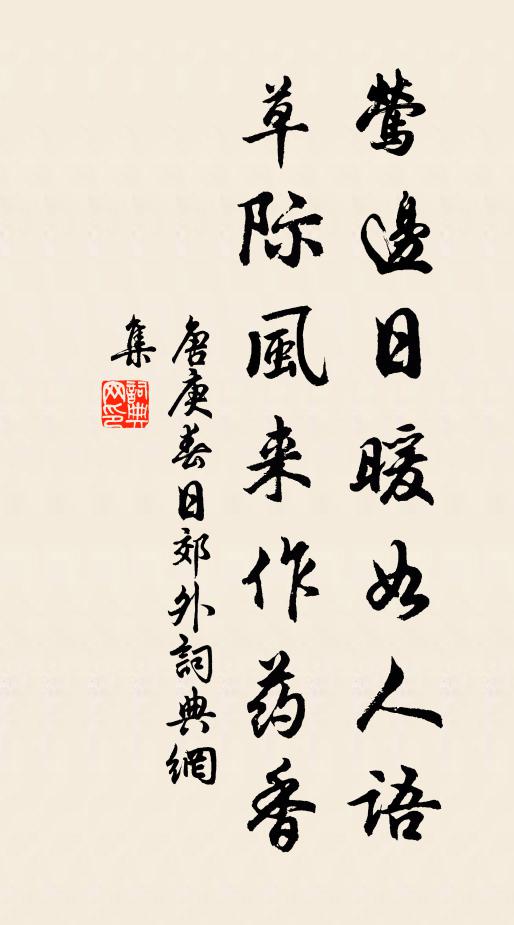 莺邊日暖如人語
草际風来作药香
唐庚春日郊外詞典網
集
詞典
网印